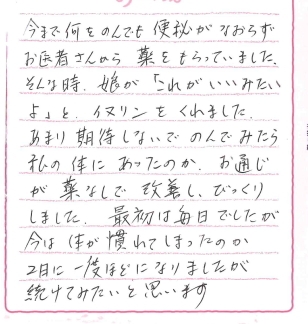 今まで何をのんでも便秘がなおらず
お医者さんから 薬をもらっていました.
そんな時、娘が「これがいいみたい
よ」と、イヌリンを くれました.
あまり期待しないで のんでみたら
私の体に あったのか、お通じ
が 薬なしで 改善し、びっくり
しました. 最初は毎日でしたが
今は 体が慣れてしまったのか
2日に一度ほどになりましたが
続けてみたいと思います